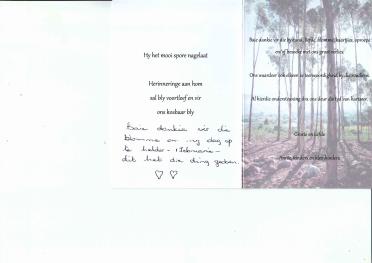 Hy het mooi spore nagelaat
Herinneringe aan hom
sal bly voortleef en vir
ons kosbaar bly
Baie dankie vir die
blomme en my dag op
te helder -
dit het die ding gedoen.
Baie dankie vir die bystand, liefde, blomme, kaartjies, oproepe
en of besoeke met ons groot verlies.
Ons waardeer ook elkeen se teenwoordigheid by die roudiens.
Al hierdie ondersteuning dra ons deur die tyd van hartseer.
Groete en liefde
kinders en kleinkinders